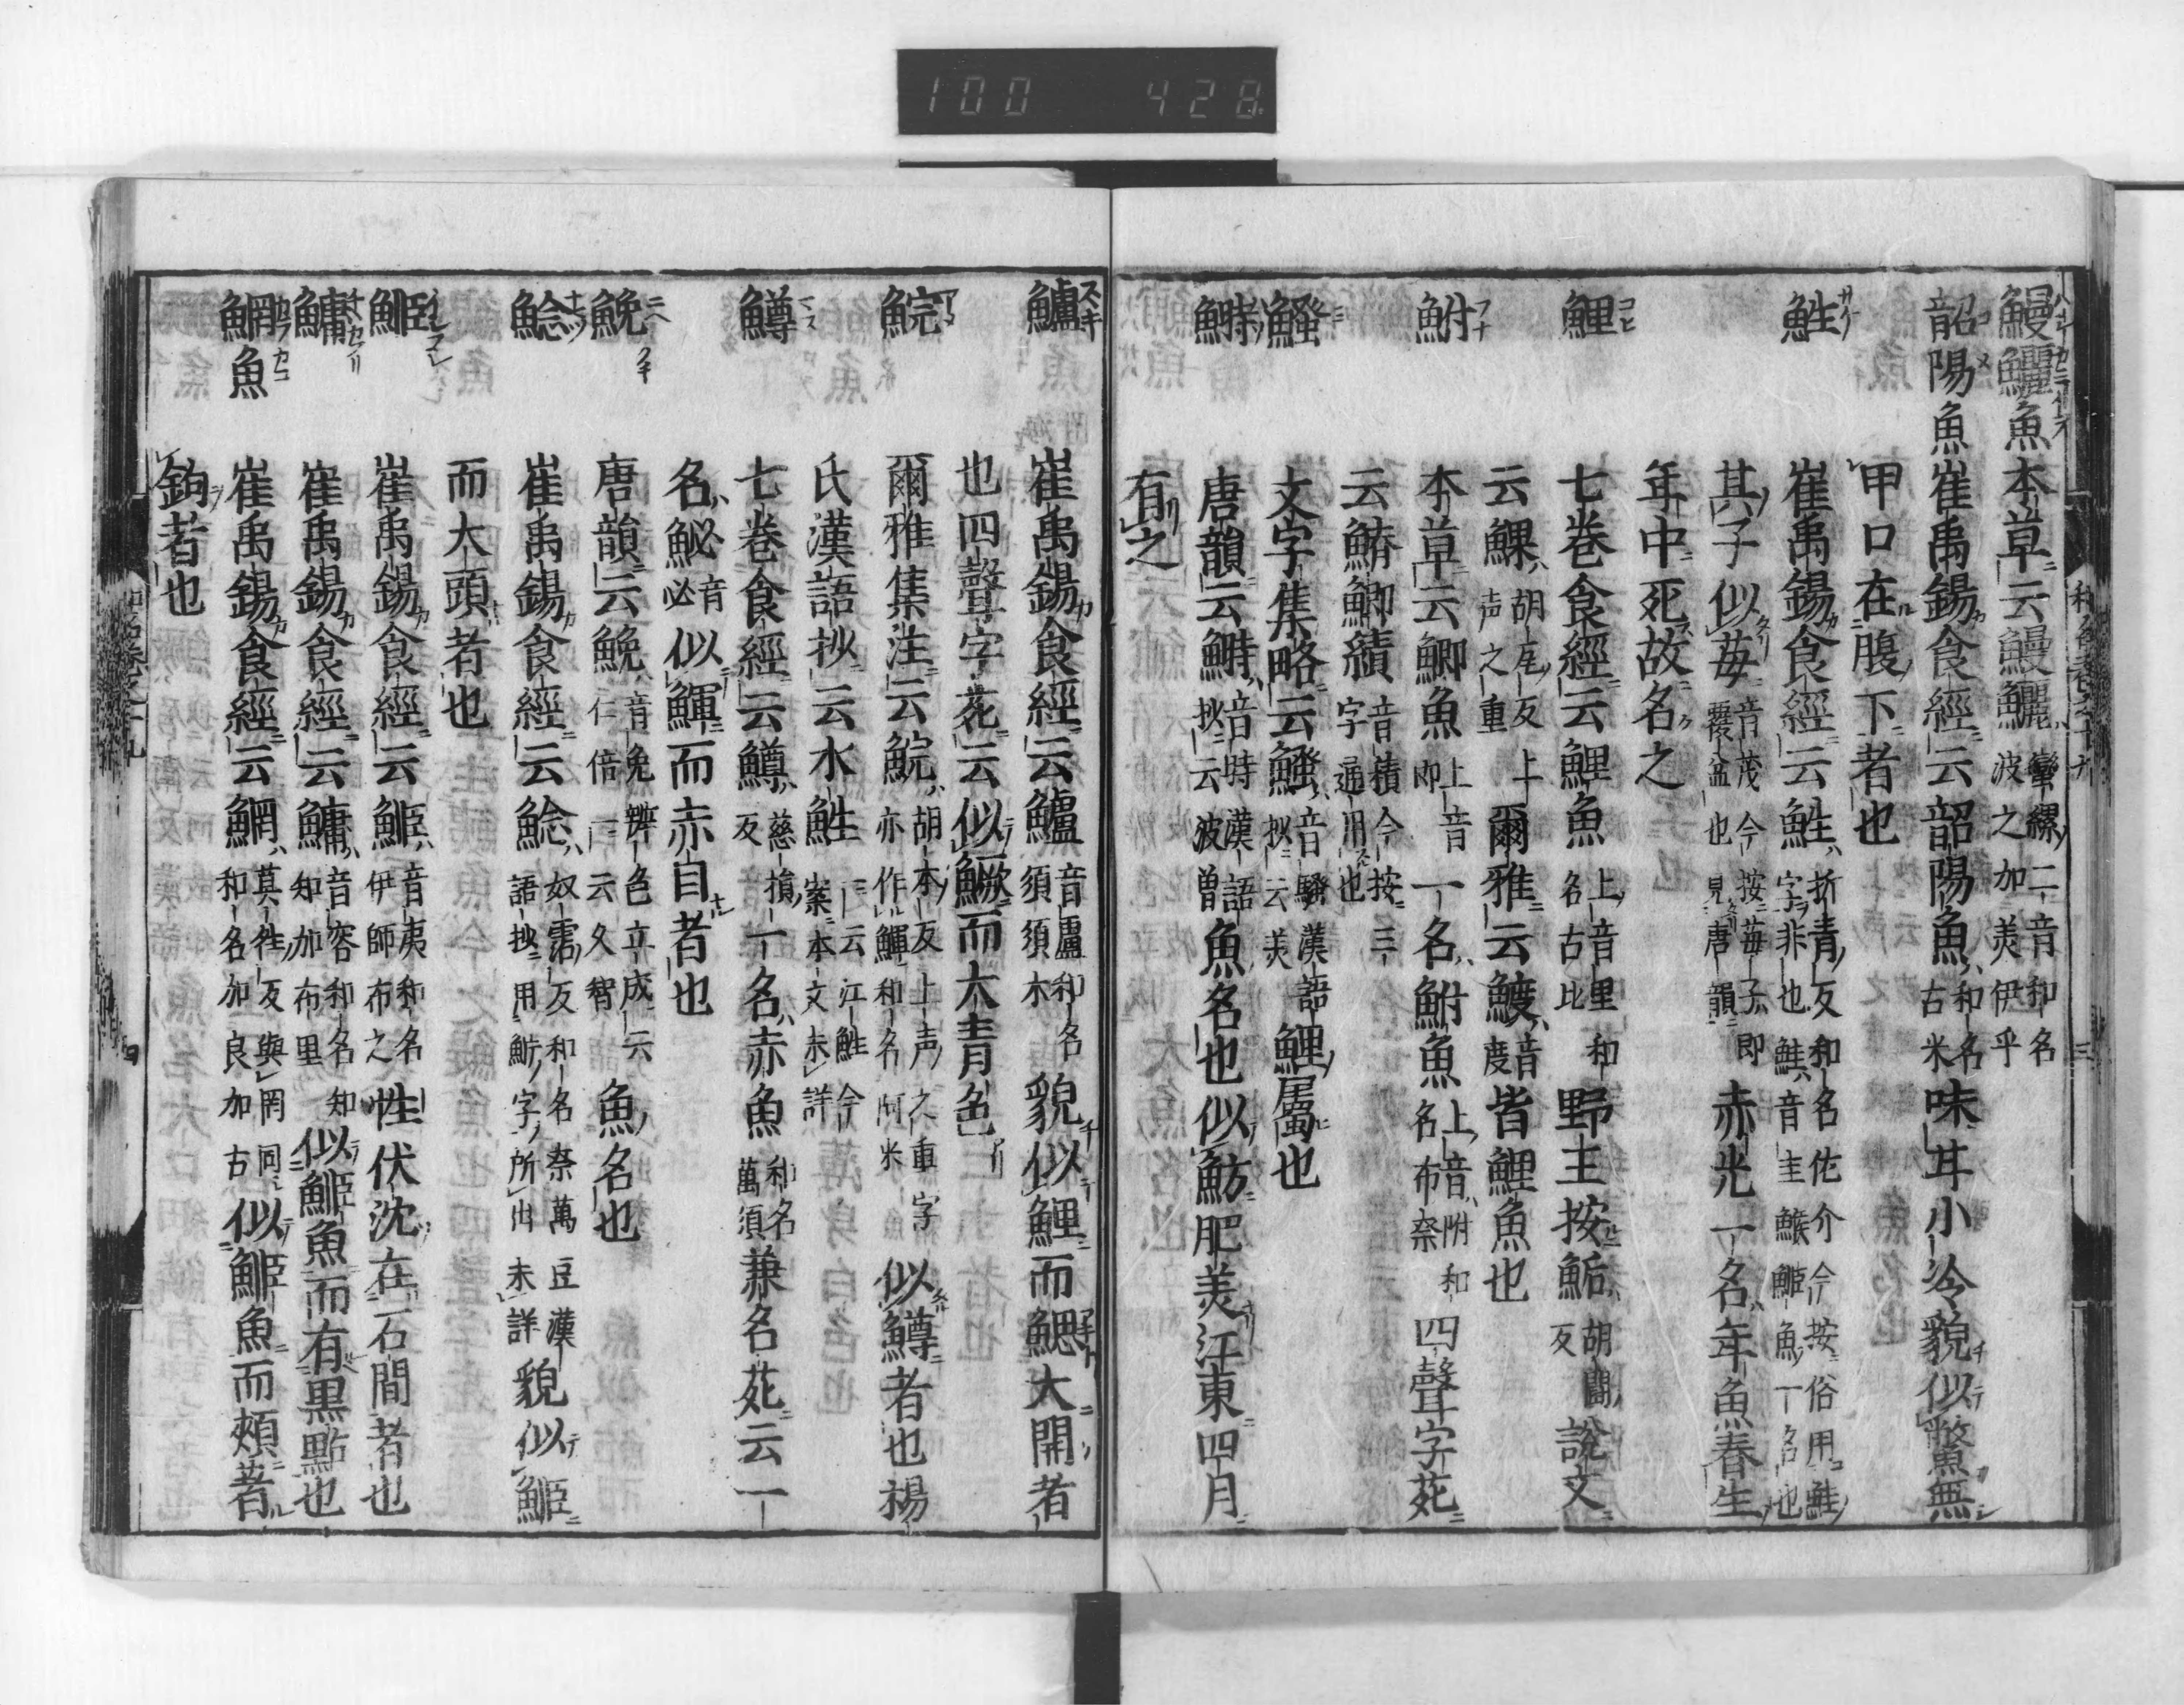 100 428
鰻鱺魚 本草云鰻鱺 蠻䌫二音和名波之加美伊乎
韶陽魚 崔禹錫食經云韶陽魚 和名古米 味甘小冷貌似鼈無
甲口在腹下者也
鮏 崔禹錫食經云鮏 折青反和名佐介今按俗用鮭字非也鮭音圭鯸䱌魚一名也
其子似苺 音茂今按苺子即覆盆也見唐韻 赤光一名年魚春生
年中死故名之
鯉 七巻食經云鯉魚 上音里和名古比 野王按鮜 胡闘反 說文
云鰥 胡瓦反上声之重 爾雅云鱯 音度 皆鯉魚也
鮒 本草云鯽魚 上音即 一名鮒魚 上音附和名布奈 四聲字苑
云鰿鯽䲙 音積今按三字通用也
鰠 文字集略云鰠 音騒漢語抄云美 鯉屬也
鰣 唐韻云鰣 音時漢語抄云波曽 魚名也似魴肥美江東四月
有之
鱸 崔禹錫食經云鱸 音盧和名須須木 貌似鯉而鰓大開者
也四聲字苑云似鱖而大青色
鯇 爾雅集注云鯇 胡本反上声之重字亦作鯶和名阿米 似鱒者也楊
氏漢語抄云水鮏 一云江鮏今案本文未詳
鱒 七巻食經云鱒 慈損反 一名赤魚 和名萬須 兼名苑云一
名鮅 音必 似鯶而赤目者也
鮸 唐韻云鮸 音免辨色立成云仁倍一云久智 魚名也
鯰 崔禹錫食經云鯰 奴霑反和名奈萬豆漢語抄用鮧字所出未詳 貌似䱌
而大頭者也
䱌 崔禹錫食經云䱌 音夷和名伊師布之 性伏沈在石間者也
鱅 崔禹錫食經云鱅 音容和名知知加加布里 似䱌魚而有黒點也
䱎魚 崔禹錫食經云䱎 莫往反與罔同和名加加良加古 似䱌魚而頰著
鉤者也